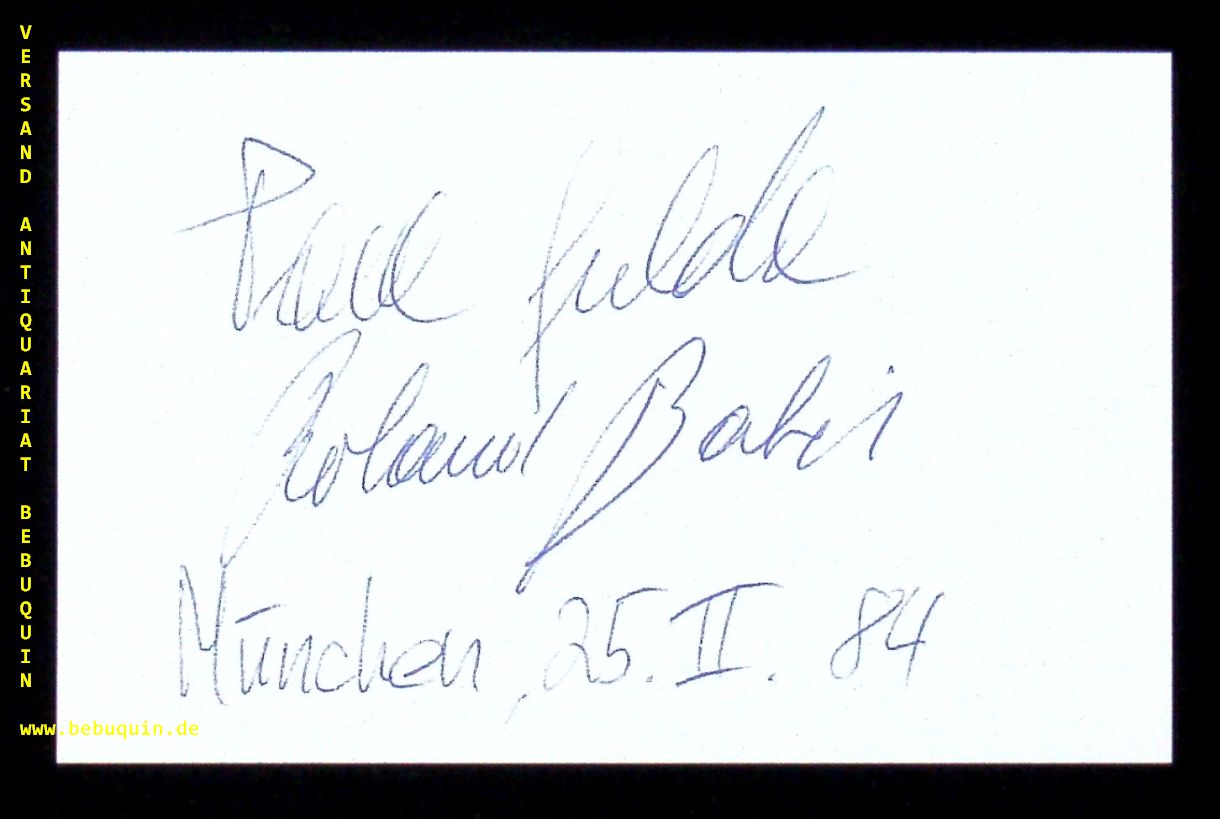 VERSAND ANTIQUARIAT BEBUQUIN
Paul Gulda
Roland Batik
München, 25. II. 84
www.bebuquin.de